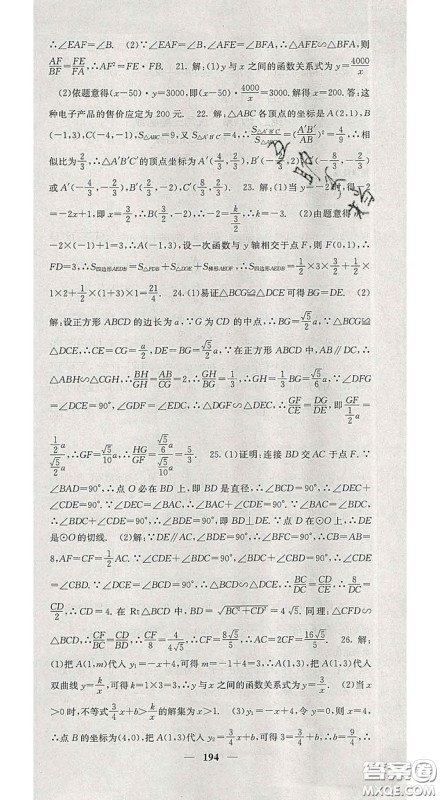 ∴∠EAF=∠B. (2)∵∠EAF=∠B,∠AFE=∠BFA,∴△AFE∽△BFA,则
AF/BF=FE/FA,∴AF²=FE·FB. 21. 解:(1)y与x之间的函数关系式为y=4000/x
(2)依题意得(x-50)·y=3000,即(x-50)·4000/x=3000.解得x=200.答:这
种电子产品的售价应定为200元. 22. 解:△ABC各顶点的坐标是A(2,1),B
(-1,3),C(-4,-1),S△ABC=9,又S△A′B′C′/S△ABC=(A′B′/AB)²=4/9,∴相
似比为2/3,∴△A′B′C′的顶点坐标为A′(4/3,2/3),B′(-2/3,2),C′(-8/3,-2/3)
或A′(-4/3,-2/3),B′(2/3,-2),C′(8/3,2/3). 23. 解:(1)当y=-2时,得-2
=-2x+1,即x=3/2,∴B(3/2,-2),∴-2=k/(3/2),∴k=-3. (2)由题意得m=
-2×(-1)+1=3,∴A(-1,3),设一次函数与y轴相交于点F,则F(0,1),∴
FD=3,∴S四边形AEDB=S△FDB+S△DOE+S梯形AFOE=1/2×3×3/2+1/2×
1×2+1/2×(1+3)×1=21/4. 24.(1)易证△BCG≌△DCE可得BG=DE. (2)
解:设正方形ABCD的边长为a,∵G为CD的中点,∴BG=√5/2a,∵△BCG≌
△DCE,∴CE=CG=a/2,∴DE=√5/2a,∵在正方形ABCD中,AB∥DC,∴
△ABH∽△CGH,∴BH/GH=AB/CG=2,∴BH/GH=2,∴GH=1/3BG=√5/6a,∵∠DFG
=∠DCE=90°,∠GDF=∠EDC,∴△DGF∽△DCE,∴GF/CE=DG/DE,即GF/(1/2a)=
(1/2a)/(√5/2a),∴GF=√5/10a,∴HG/GF=(√5/6)/(√5/10)=5/3. 25.(1)证明:连接BD交AC于点F.∵
∠BAD=90°,∴点O必在BD上,即BD是直径,∴∠BCD=90°,∴∠DEC+
∠CDE=90°.∵∠DEC=∠BAC,∴∠BAC+∠CDE=90°.∵∠BAC=∠BDC,
∴∠BDC+∠CDE=90°,∴∠BDE=90°,即BD⊥DE.∵点D在⊙O上,∴DE
是⊙O的切线. (2)解:∵DE∥AC,∠BDE=90°,∴∠BFC=90°,∴CB=AB=
8,AF=CF=1/2AC,∵∠CDE+∠BDC=90°,∠BDC+∠CBD=90°,∴∠CDE
=∠CBD.∵∠DCE=∠BCD=90°,∴△BCD∽△DCE,∴BC/DC=CD/CE,∴8/DC=
CD/2,∴CD=4. 在Rt△BCD中,BD=√(BC²+CD²)=4√5.同理:△CFD∽
△BCD,∴CF/BC=CD/BD,∴CF/8=4/(4√5),∴CF=8√5/5,∴AC=2CF=16√5/5. 26. 解:
(1)把A(1,m)代入y₁=-x+4,可得m=-1+4=3,∴A(1,3),把A(1,3)代入
双曲线y=k/x,可得k=1×3=3,∴y与x之间的函数关系式为y=3/x. (2)当x
>0时,不等式3/4x+b>k/x的解集为x>1. (3)y₁=-x+4,令y=0,则x=4,
∴点B的坐标为(4,0),把A(1,3)代入y₂=3/4x+b,可得3=3/4+b,可得b=9/4,∴
194
答案圈
MXQE.COM